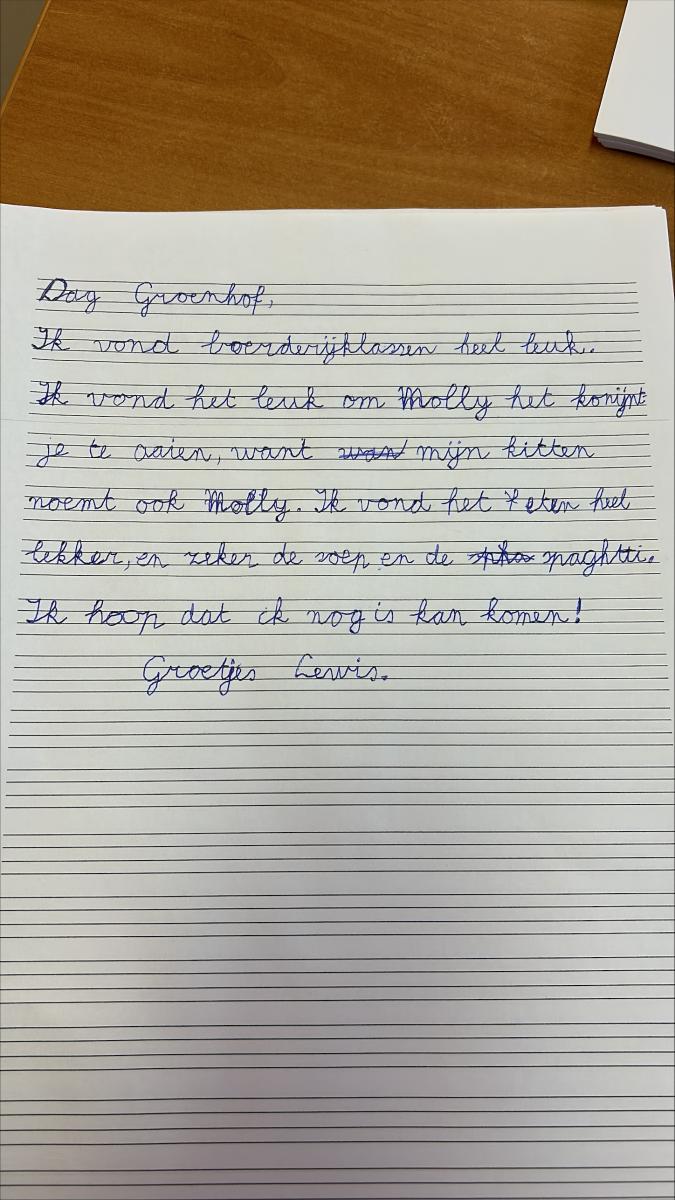 Dag Groenhof,
Ik vond boerderijklassen heel leuk.
Ik vond het leuk om Molly het konijnt
je te aaien, want mijn kitten
noemt ook Molly. Ik vond het eten heel
lekker, en zeker de soep en de spaghtti.
Ik hoop dat ik nog is kan komen!
Groetjes Lewis.